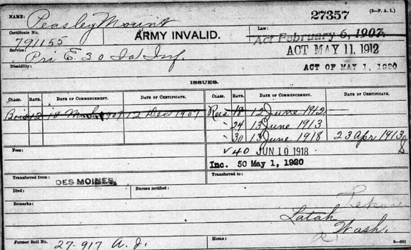 NAME: Peasley Mount 27357 (3-P. A. I.)
Certificate No. 791155 ARMY INVALID. Law: Act February 6, 1907.
Service: Pri E. 30 Ia Inf ACT MAY 11, 1912
Disability: ACT OF MAY 1, 1920
ISSUES.
CLASS. RATE. DATE OF COMMENCEMENT. DATE OF CERTIFICATE. CLASS. RATE. DATE OF COMMENCEMENT. DATE OF CERTIFICATE.
12 14 1907 12 Dec 1907 Reis 18 12 June 1912
24 13 June 1913
30 13 June 1918 23 Apr 1913
40 JUN 10 1918
Inc. 50 May 1, 1920
Transferred from
DES MOINES.
Died Bureau notified:
Remarks:
Transferred to
Latah
Wash.
Former Roll No. 27-917 A. I.